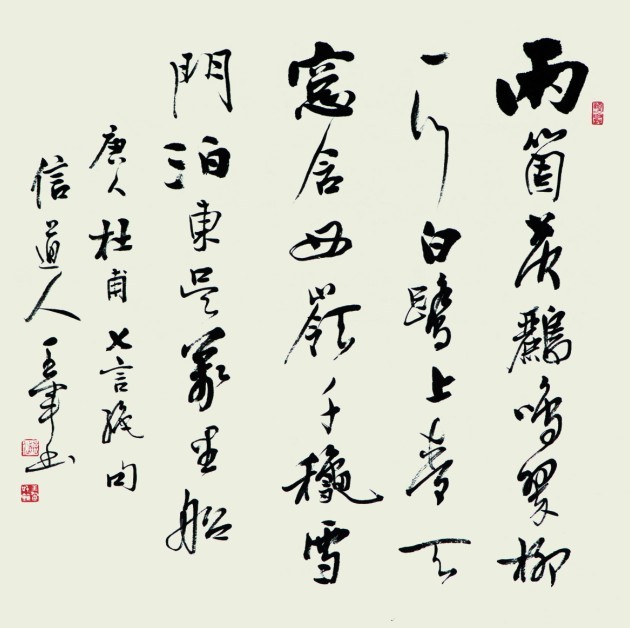 兩箇黃鸝鳴翠柳
一行白鷺上青天
窓含西嶺千穐雪
門泊東吳萬里船
唐人杜甫七言絕句
信道人王軍书